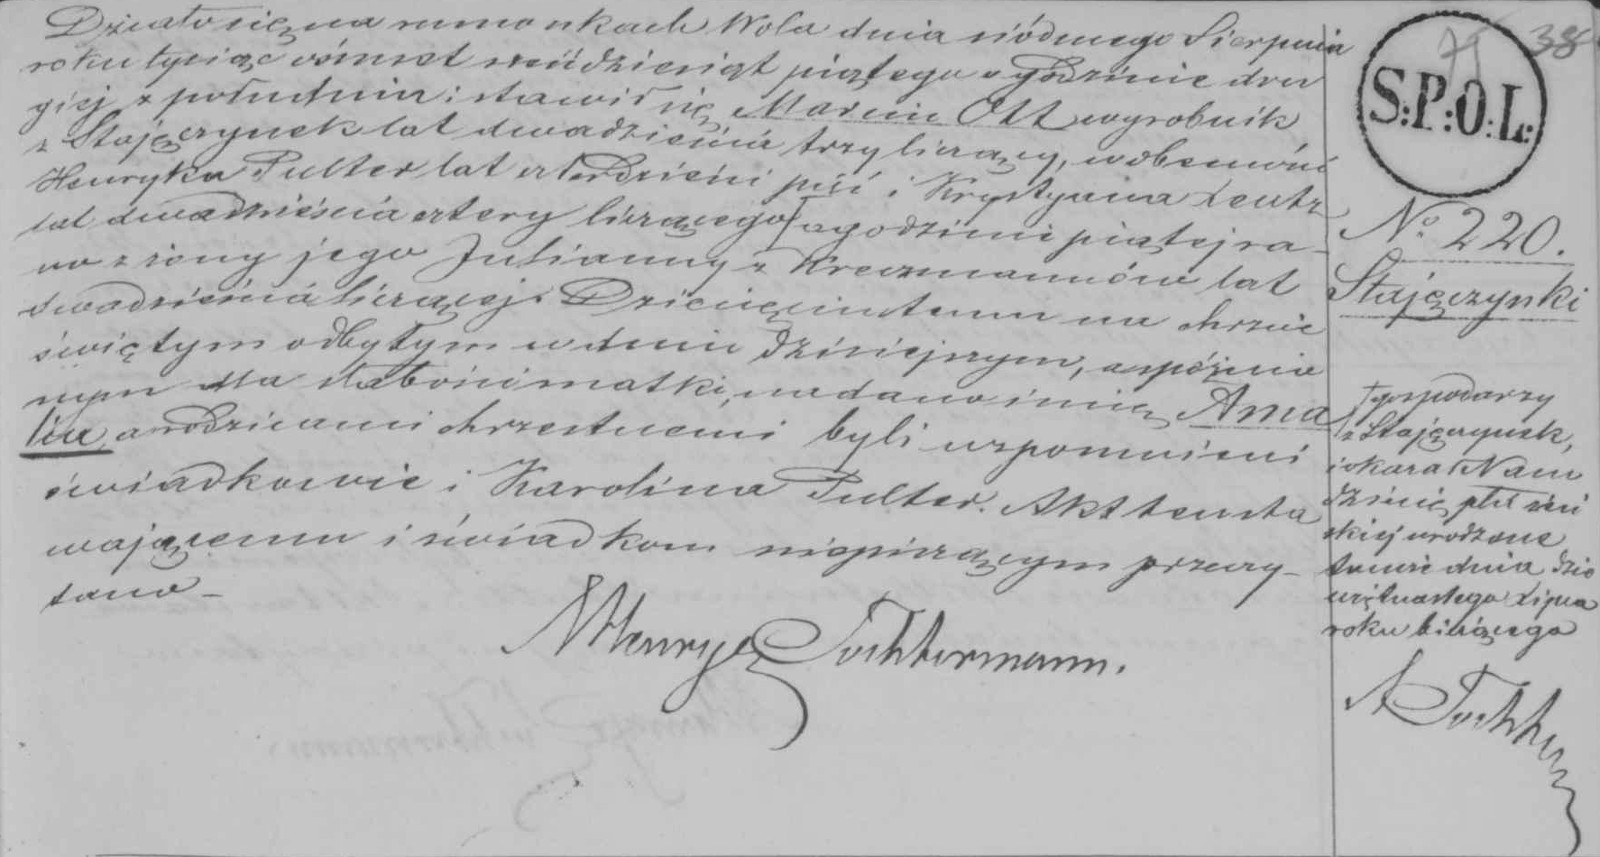 Działo się na rumonkach Wola dnia siódmego Sierpnia
roku tysiąc ośmset sześdziesiąt piątego o godzinie dru
giej z południa: stawił się Marcin Ott wyrobnik
z Stajęczynek lat dwadzieścia trzy liczący, w obecności
Henryka Pulter lat czterdzieści pięć i Krystyana Lentz
lat dwadzieścia cztery liczącego o godzinie piątej ra
no z żony jego Julianny z Kreczmannów lat
dwadzieścia liczącej. Dziecięciu temu na chrzcie
świętym odbytym w dniu dzisiejszym, a spóźnio
nym dla słabości matki, nadano imię Ama
lia, a rodzicami chrzestnemi byli wspomnieni
świadkowie i Karolina Pulter. Akt ten sta
wającemu i świadkom niepiszącym przeczy-
tano –
Henryk Tochtermann.
38
S:P:O:L:
No 220.
Stajęczynki
† gospodarzy
z Stajęczynek,
i okazał Nam
dziecię płci żeń
skiej urodzone
tamże dnia dzie
więtnastego Lipca
roku bieżącego